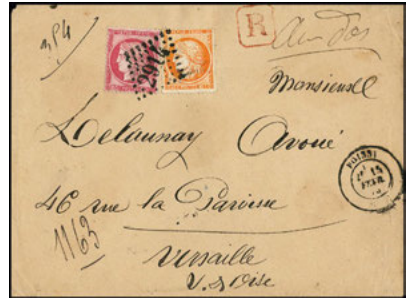 R
Monsieur
Delaunay Avoué
POISSY
15
FEVR.
46 rue la Paroisse
1163
Versaille
S. & Oise